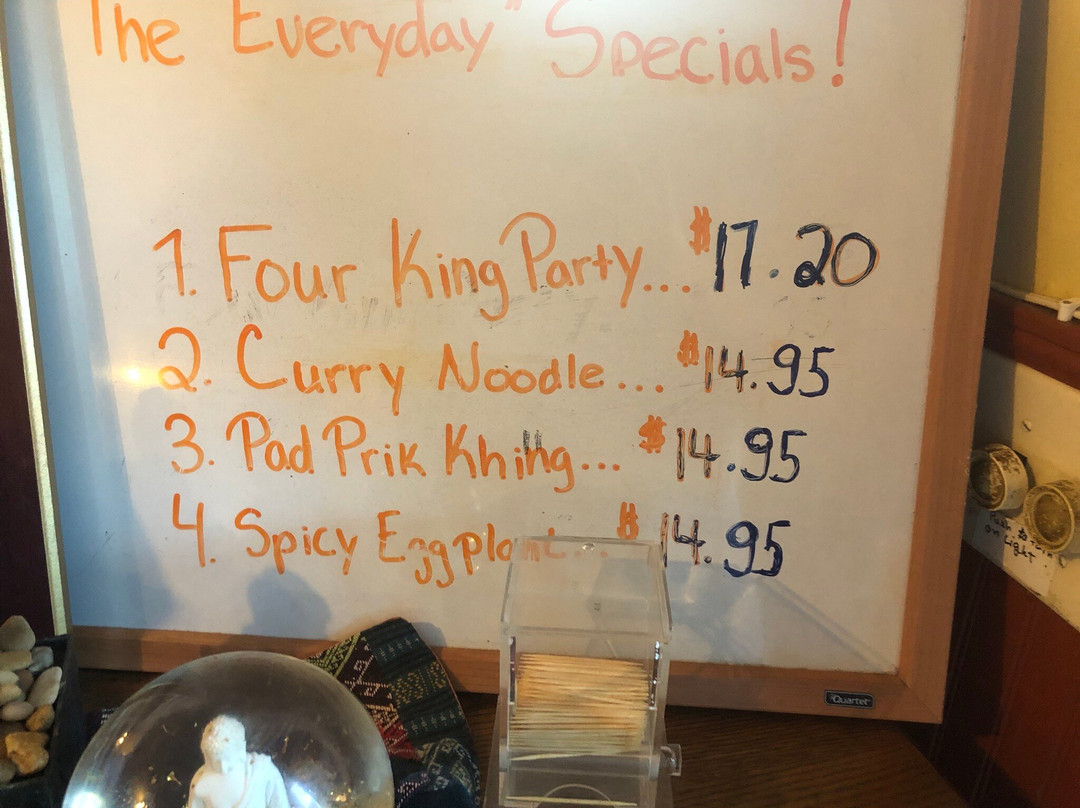 The "Everyday" Specials!
1. Four King Party... $17.20
2. Curry Noodle... $14.95
3. Pad Prik Khing... $14.95
4. Spicy Eggplant... $14.95
Quartet
on Light